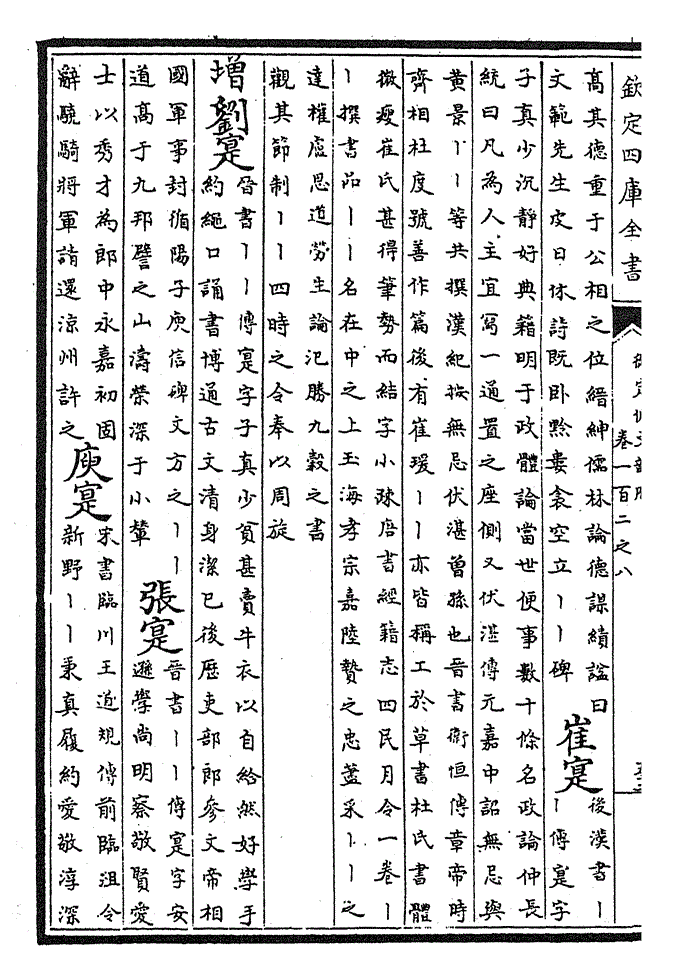 欽定四庫全書
卷一百二之八
高其德重于公相之位縉紳儒林論德謀績諡曰
文範先生皮日休詩既卧黔婁衾空立丨丨碑
崔寔
後漢書丨
丨傳寔字
子真少沉静好典籍明于政體論當世便事數十條名政論仲長
統曰凡為人主宜寫一通置之座側又伏湛傳元嘉中詔無忌與
黄景丨丨等共撰漢紀按無忌伏湛曽孫也晉書衛恒傳章帝時
齊相杜度號善作篇後有崔瑗丨丨亦皆稱工於草書杜氏書體
微瘦崔氏甚得筆勢而結字小疎唐書經籍志四民月令一卷丨
丨撰書品丨丨名在中之上玉海孝宗嘉陸贄之忠藎采丨丨之
達權盧思道勞生論汜勝九穀之書
觀其節制丨丨四時之令奉以周旋
增劉寔
晉書丨丨傳寔字子真少貧甚賣牛衣以自給然好學手
約繩口誦書博通古文清身潔己後歴吏部郎參文帝相
國軍事封循陽子庾信碑文方之丨丨
道髙于九邦譬之山濤榮深于小輦
張寔
晉書丨丨傳寔字安
遜學尚明察敬賢愛
士以秀才為郎中永嘉初固
辭驍騎將軍請還涼州許之
庾寔
宋書臨川王道規傳前臨沮令
新野丨丨秉真履約愛敬淳深